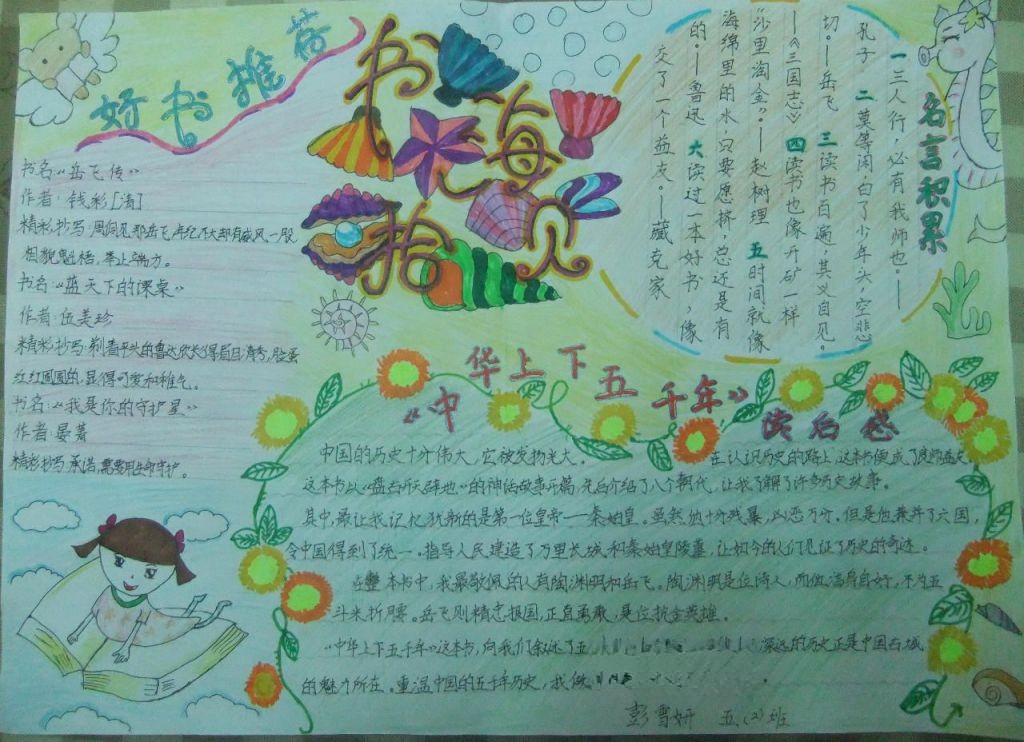 好书推荐
书名:“岳飞传”
作者:钱彩[清]
精彩抄写:周侗见那岳飞年纪不大却有威风一股
相貌魁梧,举止端方。
书名:“蓝天下的课桌”
作者:伍美珍
精彩抄写:剃着平头的鲁达欣长得眉目清秀,脸蛋
红红圆圆的,显得可爱和稚气。
书名:“我是你的守护星”
作者:晏菁
精彩抄写:承诺,需要用生命守护。
书海无拾贝
名言积累
一三人行,必有我师也。——
孔子 二莫等闲,白了少年头,空悲
切。——岳飞 三读书百遍,其义自见。
——《三国志》 四读书也像开矿一样
“沙里淘金”。——赵树理 五时间就像
海绵里的水,只要愿挤,总还是有
的。——鲁迅 六读过一本好书,像
交了一个益友。——藏克家
“中华上下五千年”
读后感
中国的历史十分伟大,它被发扬光大。
在认识历史的路上,这本书便成了良师益友
这本书以“盘古开天辟地”的神话故事开篇,先后介绍了八个朝代,让我了解了许多历史故事。
其中,最让我记忆犹新的是第一位皇帝——秦始皇。虽然他十分残暴,凶恶万分,但是他兼并了六国,
令中国得到了统一。指导人民建造了万里长城和秦始皇陵墓,让如今的人们见证了历史的奇迹。
在整本书中,我最敬佩的人有陶渊明和岳飞。陶渊明是位诗人,而他洁身自好,不为五
斗米折腰。岳飞则精忠报国,正直勇敢,是位抗金英雄。
“中华上下五千年”这本书,向我们叙述了五 深远的历史正是中国古城
的魅力所在。重温中国的五千年历史,我
彭雪妍 五(2)班